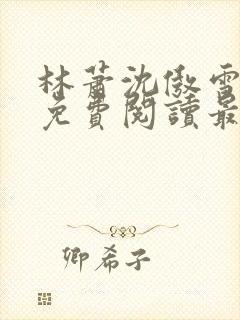 林蕭沈傲雪
免費閱讀最
卿希子